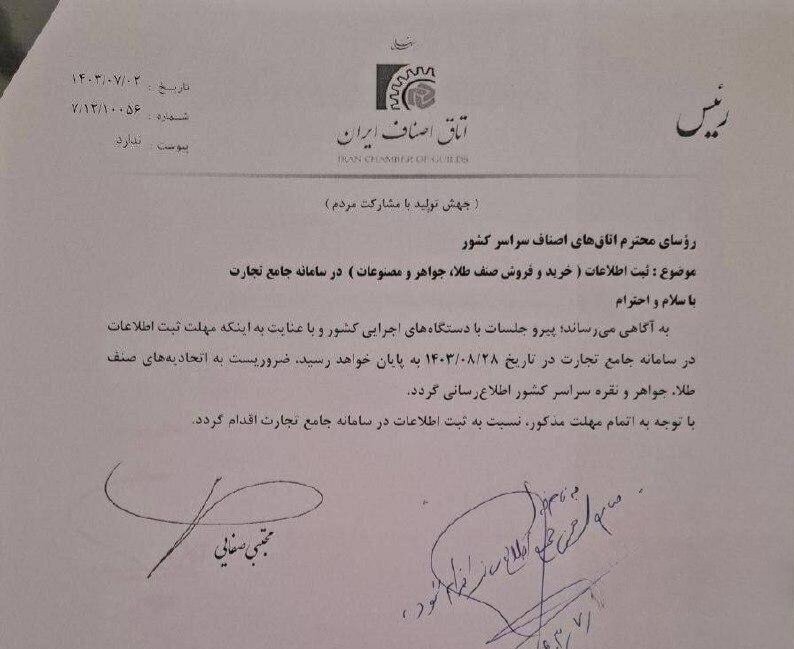 تاریخ : ۱۴۰۳/۰۷/۰۲
شماره : ۷/۱۲/۱۰۰۵۶
پیوست : ندارد
اتاق اصناف ایران
IRAN CHAMBER OF GUILDS
رئیس
( جهش تولید با مشارکت مردم )
رؤسای محترم اتاق‌های اصناف سراسر کشور
موضوع : ثبت اطلاعات ( خرید و فروش صنف طلا، جواهر و مصنوعات ) در سامانه جامع تجارت
با سلام و احترام
به آگاهی می‌رساند؛ پیرو جلسات با دستگاه‌های اجرایی کشور و با عنایت به اینکه مهلت ثبت اطلاعات
در سامانه جامع تجارت در تاریخ ۱۴۰۳/۰۸/۲۸ به پایان خواهد رسید، ضروریست به اتحادیه‌های صنف
طلا، جواهر و نقره سراسر کشور اطلاع‌رسانی گردد.
با توجه به اتمام مهلت مذکور، نسبت به ثبت اطلاعات در سامانه جامع تجارت اقدام گردد.
مجتبی صفایی